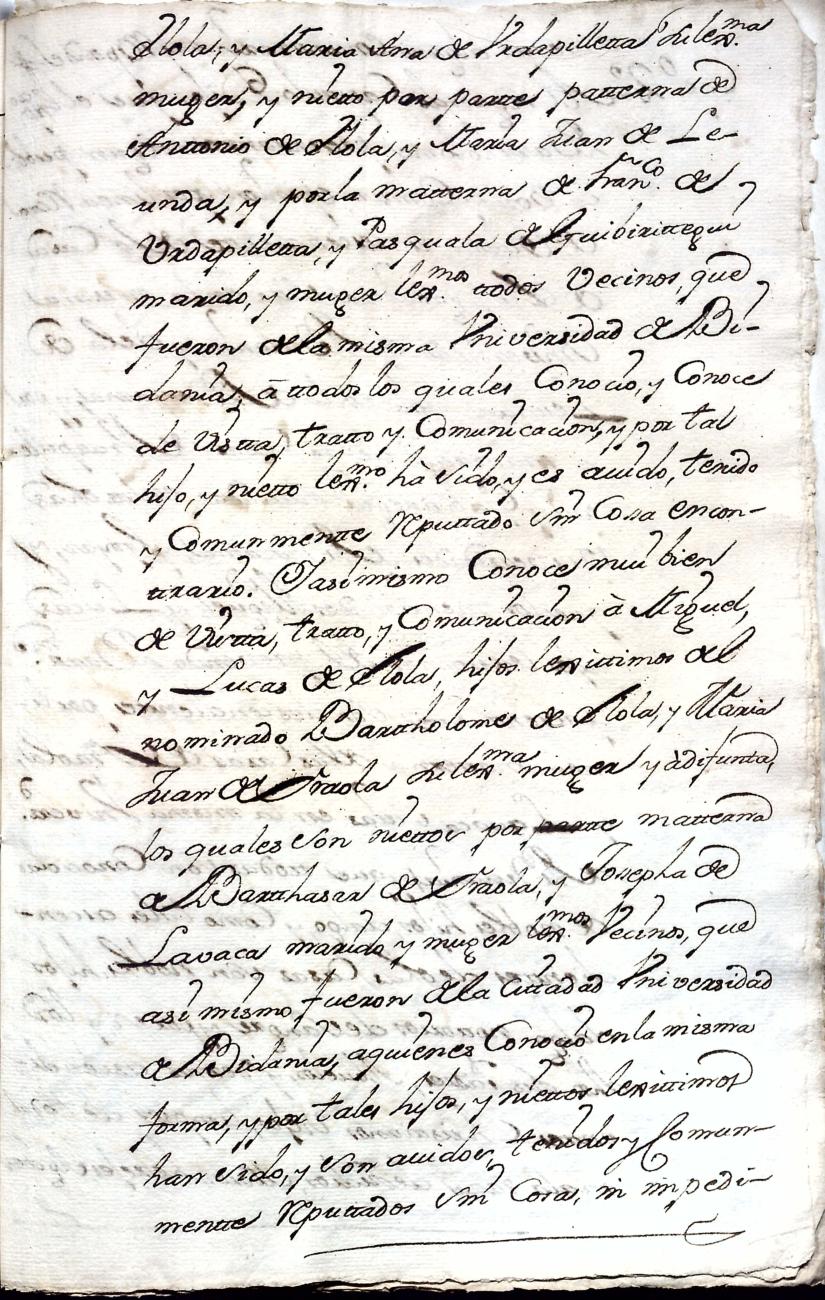 Olola, y Maria Ana de Vrdapilletta su lexma
muger, y nietto por partte patterna de
Anttonio de Olola, y Maria Juan de Le-
unda, y por la matterna de Franco de
Vrdapilletta, y Pasquala de Eguibirittegui
marido, y muger lexmos ttodos Vecinos, que
fueron de la misma Vniversidad de Bi-
dania, à ttodos los quales Conocio, y Conoce
de Vistta, tratto y Comunicacion, y por tal
hijo, y nietto lexmo hà sido, y es avido, tenido
y Comunmentte Reputtado sin Cosa en con-
ttrario. Y asimismo Conoce mui bien
de Vistta, tratto, y Comunicacion à Miguel,
y Lucas de Olola, hijos lexittimos del
nominado Bartholome de Olola, y Maria
Juan de Vraola su lexma muger ya difunta,
los quales son niettos por partte matterna
de Balthasar de Vraola, y Josepha de
Lavaca marido y muger lexmos Vecinos, que
asi mismo fueron de la Cittadad Vniversidad
de Bidania, a quienes Conocio en la misma
forma, y por tales hijos, y niettos lexittimos
han sido, y son avidos, tenidos y Comun-
mentte Reputtados sin Cosa, ni impedi-